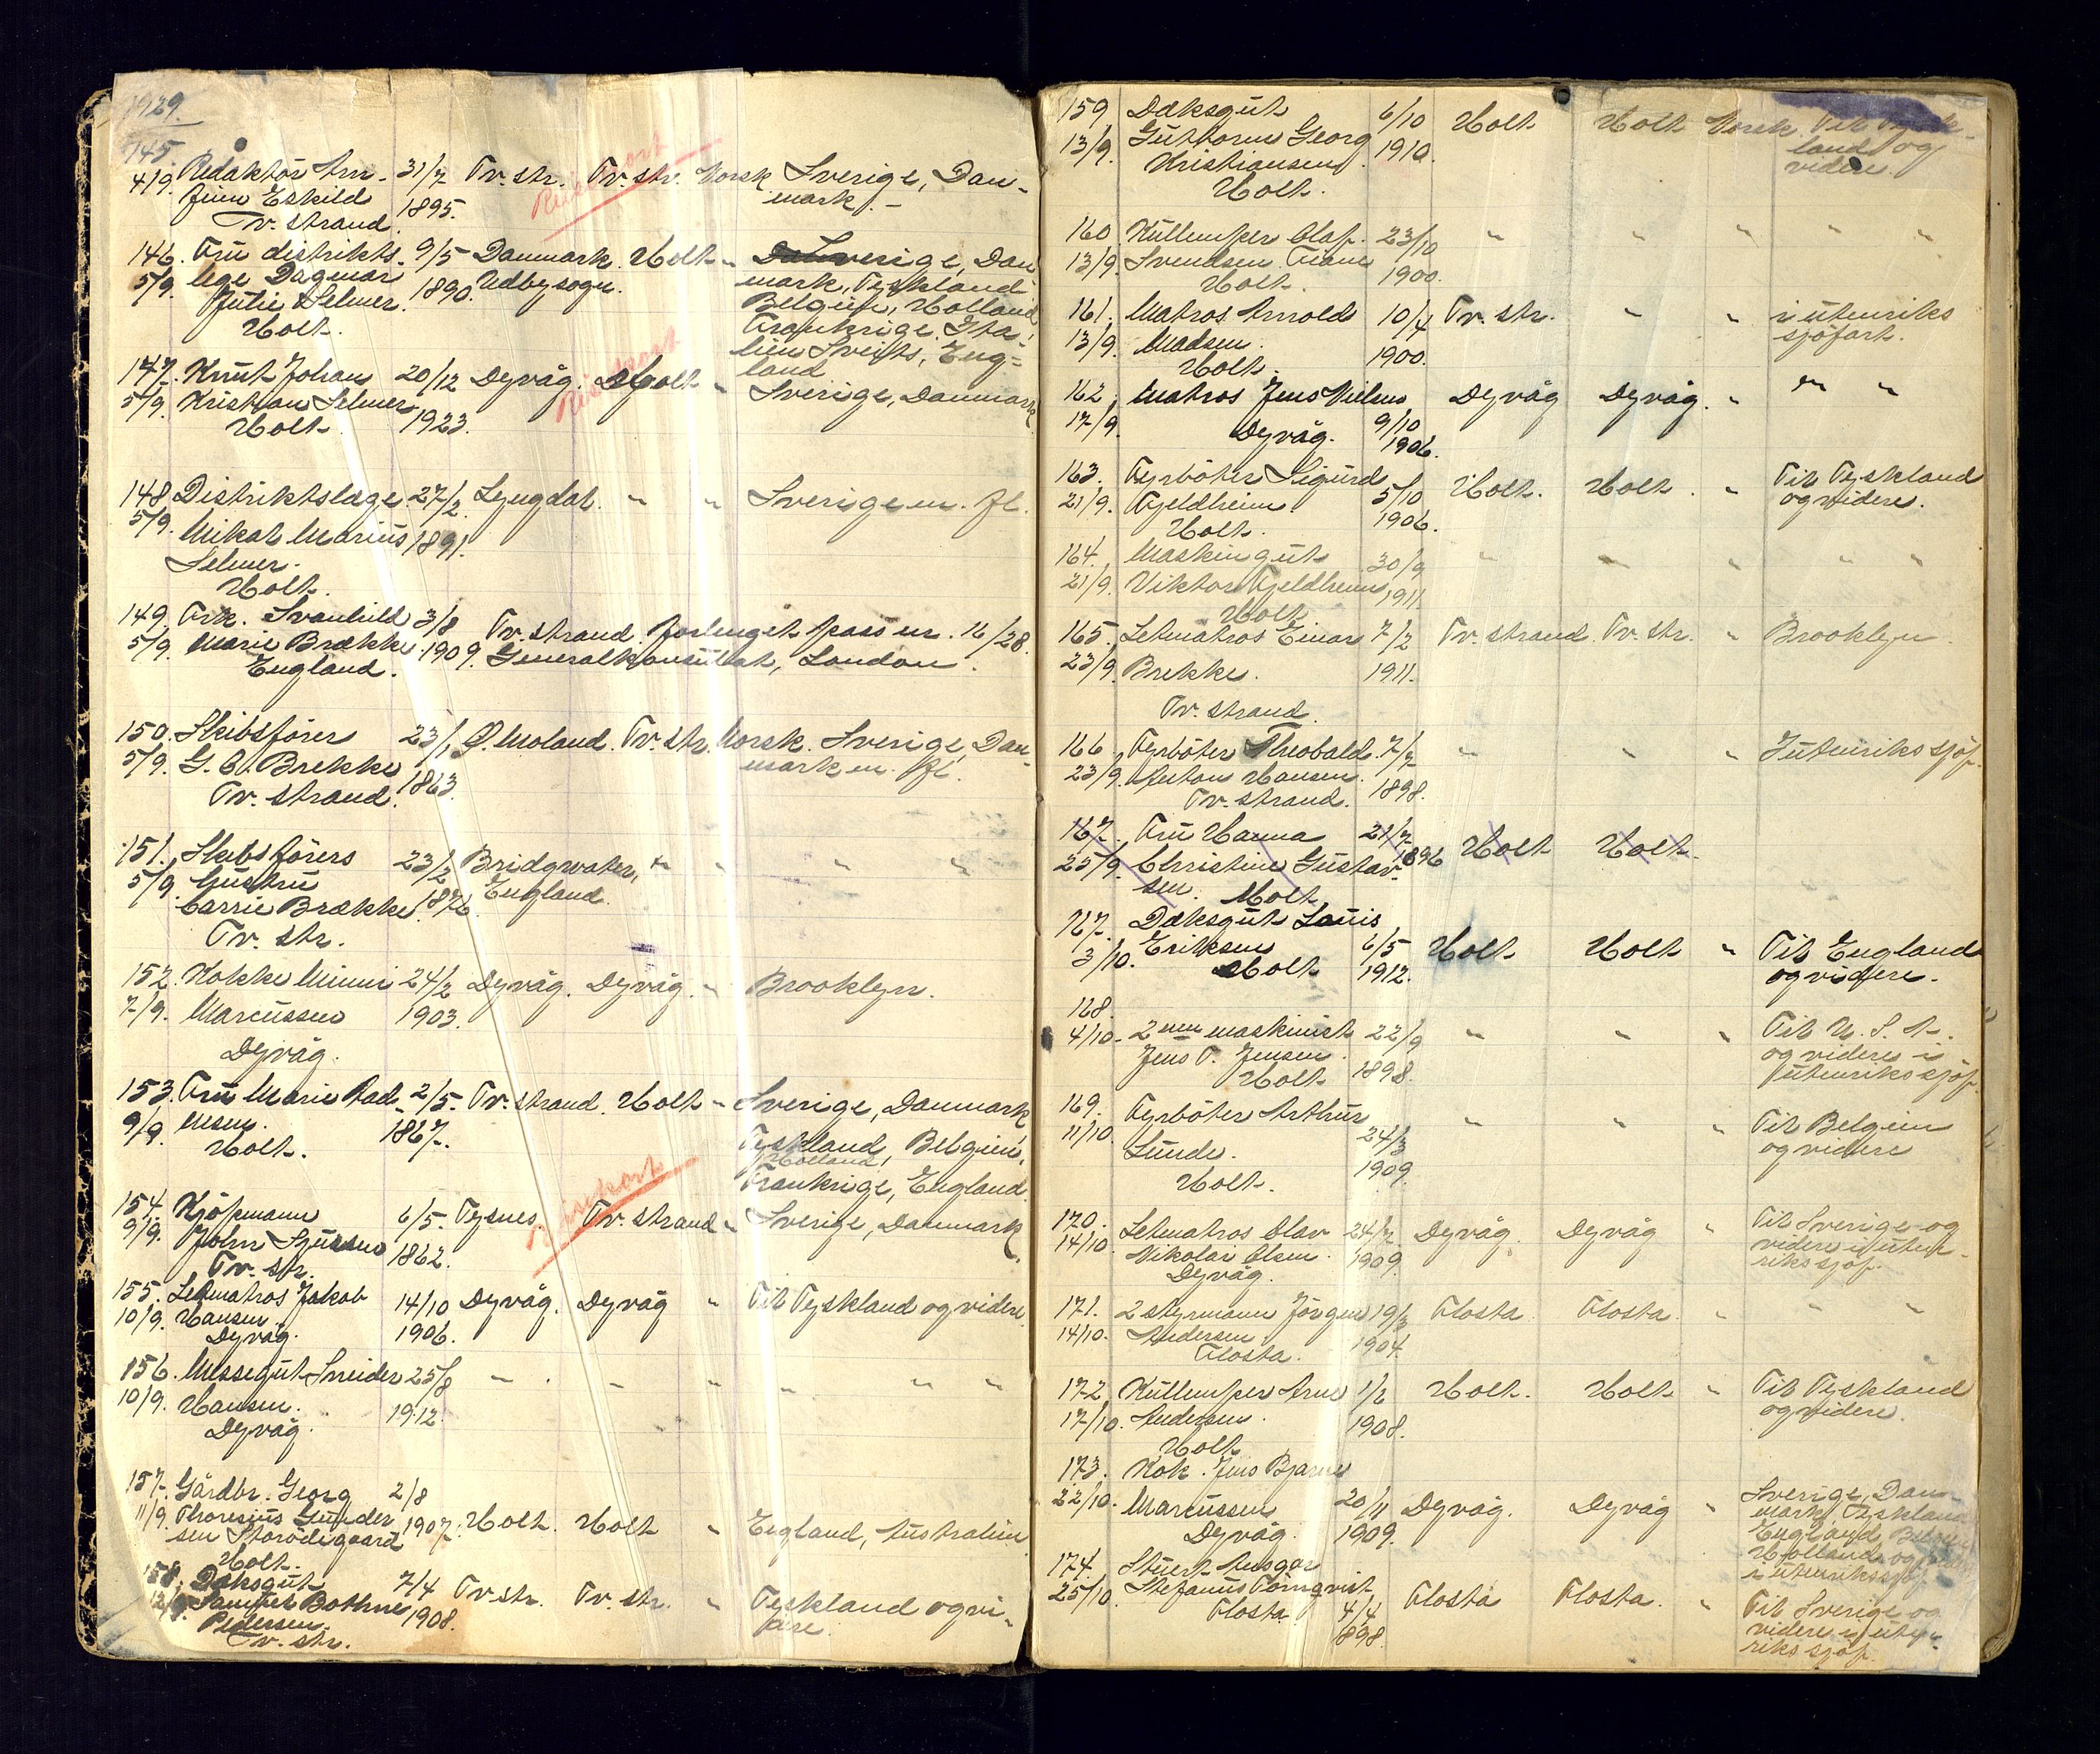 1929.
145. Redaktör Arn- 31/7 Tv.str. Tv.str. Norsk Sverige, Dan-
4/9. finn Eskild 1895. mark.-
Tv. strand.
146. Fru distrikts- 9/5 Danmark. Holt " Sverige, Dan
5/9. læge Dagmar 1890. Udbysogn. mark, Tyskland
Julie Selmer. Belgien, Holland,
Holt. Frankrige, Ita-
lien Sveits, Eng-
land
147. Knut Johan 20/12 Dyvåg. Holt " Sverige, Danmark
5/9. Kristian Selmer 1923.
Holt.
148 Distriktslæge 27/2 Lyngdal. " " Sverige m. fl.
5/9. Mikal Marius 1891.
Selmer.
Holt.
149. Frk. Svanhild 3/8 Tv.strand. Forlenget pass nr. 16/28.
5/9. Marie Brække 1909. Generalkonsulat, London.
England.
150. Skibsförer 23/1 Ø. Moland. Tv.str. Norsk. Sverige, Dan-
5/9. G. A. Brekke 1863. mark m. fl.
Tv. strand.
151. Skibsförers 23/2 Bridgwater, " " " "
5/9. hustru 1876. England.
Carrie Brække.
Tv. str.
152. Kokke Minni 24/2 Dyvåg. Dyvåg. " Brooklyn.
7/9. Marcussen 1903.
Dyvåg.
153. Fru Marie Aad- 2/5. Tv.strand. Holt " Sverige, Danmark
9/9. nesen. 1867. Tyskland, Belgien,
Holt. Holland,
Frankrige, England.
154. Kjöpmann 6/5. Tysnes. Tv.strand " Sverige, Danmark.
9/9. John 1862.
Tv. str.
155. Letmatros Jakob 14/10 Dyvåg. Dyvåg " Til Tyskland og videre
10/9. Hansen. 1906.
Dyvåg.
156. Messegut Sneider 25/8 " " " " " "
10/9. Hansen. 1912.
Dyvåg.
157. Gårdbr. Georg 2/8
11/9. Thoresius Gunder 1907. Holt. Holt " England, Australien
sen Storödegaard
Holt.
158. Dæksgut 7/4 Tv str. Tv. str. " Tyskland og vi-
12/9. Samuel Bothne 1908. dere.
Pedersen.
Tv. str.
159 Dæksgut 6/10 Holt Holt Norsk Til Tysk-
13/9. Guttorm Georg 1910. land og
Kristiansen videre.
Holt.
160 Kullemper Olaf 23/10 " " " " "
13/9. Svendsen 1900.
Holt.
161. Matros Arnold 10/4 Tv. str. " " i utenriks
13/9. Madsen. 1900. sjöfart.
Holt.
162, Matros Jens Nielsen Dyvåg Dyvåg. " " "
17/9. Dyvåg. 9/10
1906.
163. Fyrböter Sigurd 5/10 Holt. Holt. " Til Tyskland
21/9. Fjeldheim. 1906. og videre.
Holt.
164. Maskingut 30/9 " " " " "
21/9. Viktor Fjeldheim 1911.
Holt
165. Letmatros Einar 7/2 Tv. strand. Tv. str. " Brooklyn.
23/9. Brekke. 1911.
Tv. strand.
166, Fyrböter Theobald 7/7 " " " I utenriks sjöf.
23/9. Anton Hansen. 1898.
Tv. strand.
167. Fru Hanna 21/7 Holt Holt.
25/9. Christine Gustav- 1896
sen. Holt.
167. Dæksgut Louis
3/10. Eriksen 6/5 Holt Holt " Til England
Holt 1912. og videre.
168.
4/10. 2nen maskinist 22/9 " " " Til U. S. A.
Jens T. Jensen. 1898. og videre i
Holt utenriks sjöf.
169. Fyrböter Arthur " " " Til Belgien
11/10. Lunde. 24/3 og videre
Holt. 1909.
170. Letmatros Olav 24/7 Dyvåg. Dyvåg " Til Sverige og
14/10. Nikolai Olsen. 1909. videre i uten-
Dyvåg. riks sjöf.
171. 2 styrmann Jörgen 19/3 Flosta Flosta. " " "
14/10. Andersen 1904.
Flosta.
172, Kullemper Arne 1/2 Holt. Holt " Til Tyskland
17/10. Andersen. 1908. og videre.
Holt
173. Kok. Jens Bjarne
22/10. Marcussen 20/11 Dyvåg. Dyvåg " Sverige, Dan-
Dyvåg. 1909. mark, Tyskland
England
Holland og
i utenrikssjöf.
174. Stuert Ansgar
25/10. Stefanus Törnqvist Flosta Flosta. " Til Sverige og
Flosta 4/4 videre i uten-
1898. riks sjöf.